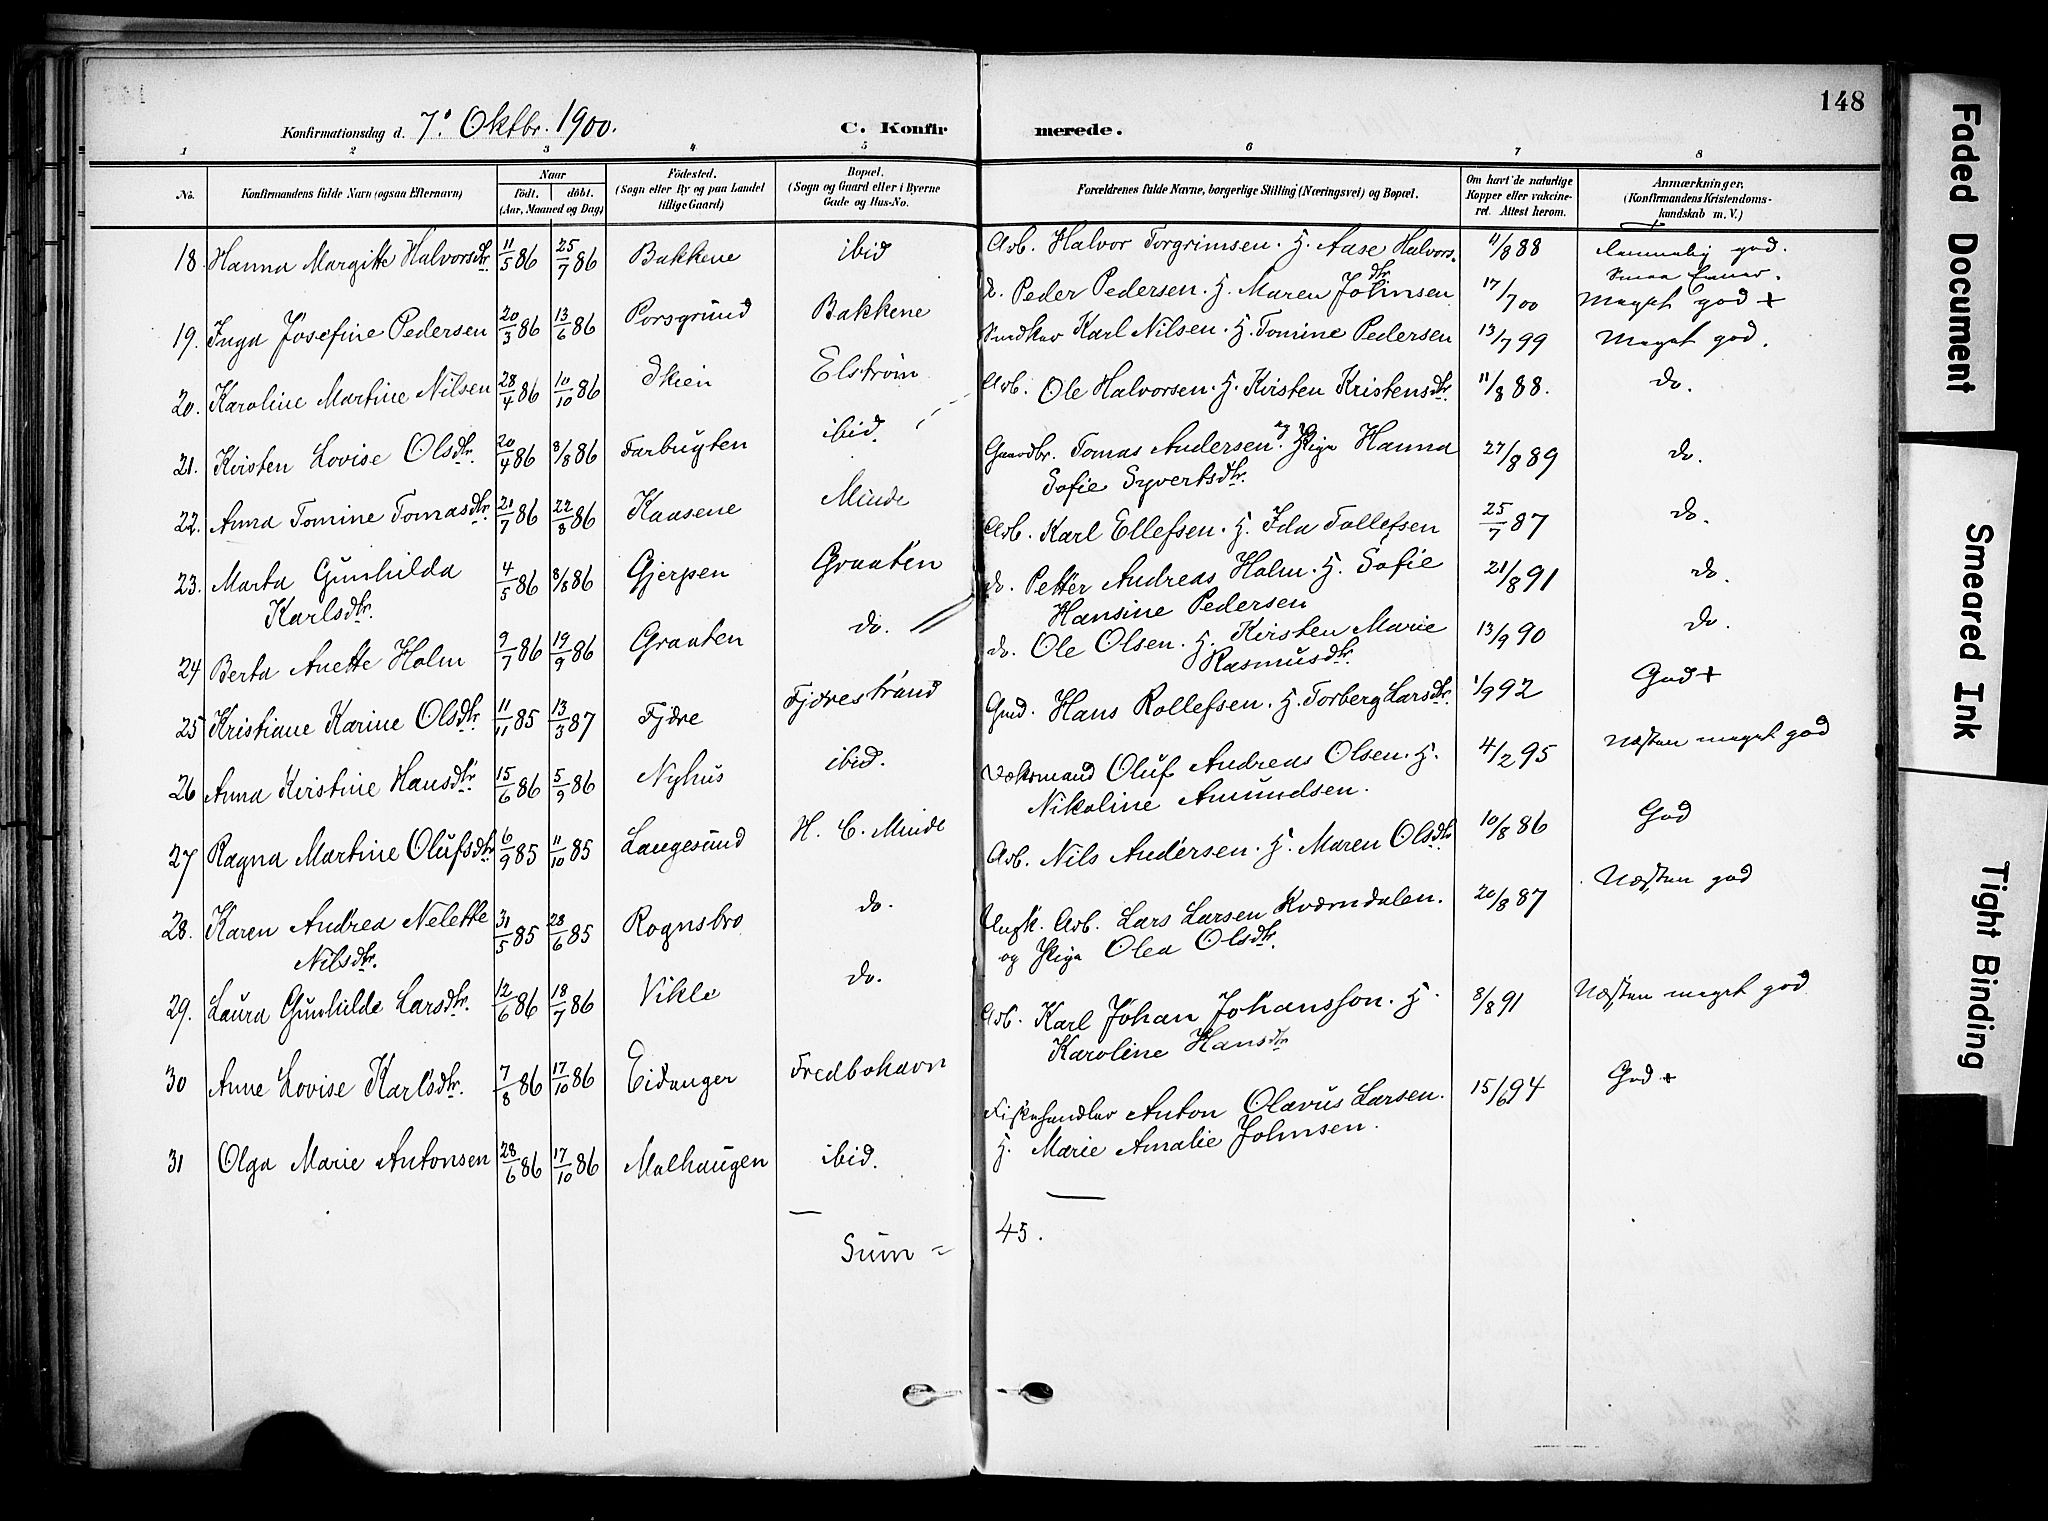 148
Konfirmationsdag d. 7' Oktbr. 1900. C. Konfirmerede.
1 2 3 4 5 6 7 8
No. Konfirmandens fulde Navn (ogsaa Efternavn) Naar födt. döbt. (Aar, Maaned og Dag) Födested. (Sogn eller By og paa Landet tillige Gaard) Bopæl. (Sogn og Gaard eller i Byerne Gade og Hus-No. Forældrenes fulde Navne, borgerlige Stilling (Næringsvei) og Bopæl. Om havt de naturlige Kopper eller vakcineret. Attest herom. Anmærkninger. (Konfirmandens Kristendomskundskab m. V.)
18 Hanna Margitte Halvorsdtr. 11/5 86 25/7 86 Bakkene ibid Arb. Halvor Torgrimsen. H. Aase Halvorsdtr 11/8 88 god.
19. Inga Josefine Pedersen 20/3 86 13/6 86 Porsgrund Bakkene d. Peder Pedersen. H. Maren Johnsen 17/7 00 Meget god +
20. Karoline Martine Nilsen 28/4 86 10/10 86 Skien Elstrøm Snedker Karl Nilsen. H. Tomine Pedersen 13/7 99 Meget god.
21. Kirsten Lovise Olsdtr. 20/4 86 8/8 86 Farbugten ibid. Arb. Ole Halvorsen. H. Kirsten Kristensdtr. 11/8 88. do.
22. Anna Tomine Tomasdtr. 21/7 86 22/8 86 Kaasene Minde Gaardbr. Tomas Andersen og Pige Hanna
Sofie Syvertsdtr. 27/8 89 do.
23. Marta Gunhilda
Karlsdtr. 4/5 86 8/8 86 Gjerpen Graaten Arb. Karl Ellefsen. H. Ida Tollefsen 25/7 87 do.
24 Berta Anette Holm 9/7 86 19/9 86 Graaten do. do. Petter Andreas Holm. H. Sofie
Hansine Pedersen 21/8 91 do.
25 Kristiane Karine Olsdtr. 11/11 85 13/3 87 Fjære Fjærestrand do. Ole Olsen. H. Kirsten Marie
Rasmusdtr. 13/9 90 do.
26 Anna Kirstine Hansdtr. 15/6 86 5/9 86 Nyhus ibid. Gmd. Hans Rollefsen. H. Torberg Larsdtr. 1/9 92 God +
27 Ragna Martine Olufsdtr 6/9 85 11/10 85 Langesund H. C. Minde Oluf Andreas Olsen. H.
Nikoline Amundsen. 4/2 95 Næsten meget god
28. Karen Andrea Nelette
Nilsdtr. 31/5 85 28/6 85 Rognsbro do. Arb. Nils Andersen. H. Maren Olsdtr 10/8 86 God
29. Laura Gunhilde Larsdtr. 12/6 86 18/7 86 Vikle do. Ungk. Arb. Lars Larsen Kværndalen.
og Pige Olea Olsdtr. 20/8 87 Næsten god
30 Anne Lovise Karlsdtr. 7/8 86 17/10 86 Eidanger Fredbohavn Arb. Karl Johan Johansson. H.
Karoline Hansdtr 8/8 91 Næsten meget god
31 Olga Marie Antonsen 28/6 86 17/10 86 Malhaugen ibid. Fiskehandler Anton Olavus Larsen.
H. Marie Amalie Johnsen. 15/6 94 God +
Sum = 45.
Faded Document
Smeared Ink
Tight Binding